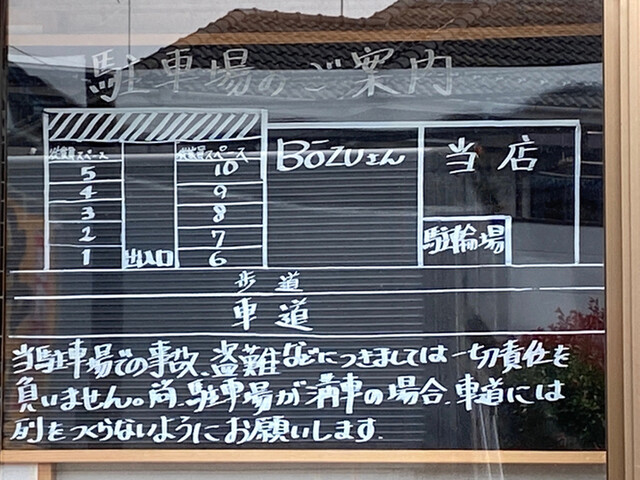 駐車場のご案内
従業員スペース
従業員スペース
5
10
4
9
3
8
2
7
1
出入口
6
BōZUさん
当店
駐輪場
歩道
車道
当駐車場での事故、盗難などにつきましては一切責任を
負いません。尚、駐車場が満車の場合、車道には
列をつくらないようにお願いします.